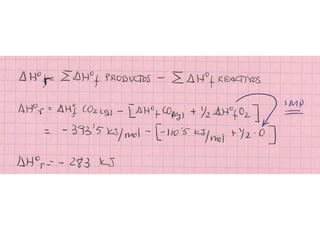 ΔH°r = ΣΔH°f PRODUCTOS - ΣΔH°f REACTIVOS
ΔH°r = ΔH°f CO2(g) - [ΔH°f CO(g) + 1/2 ΔH°f O2] IMP
= -393'5 KJ/mol - [-110'5 KJ/mol + 1/2·0]
ΔH°r = -283 KJ